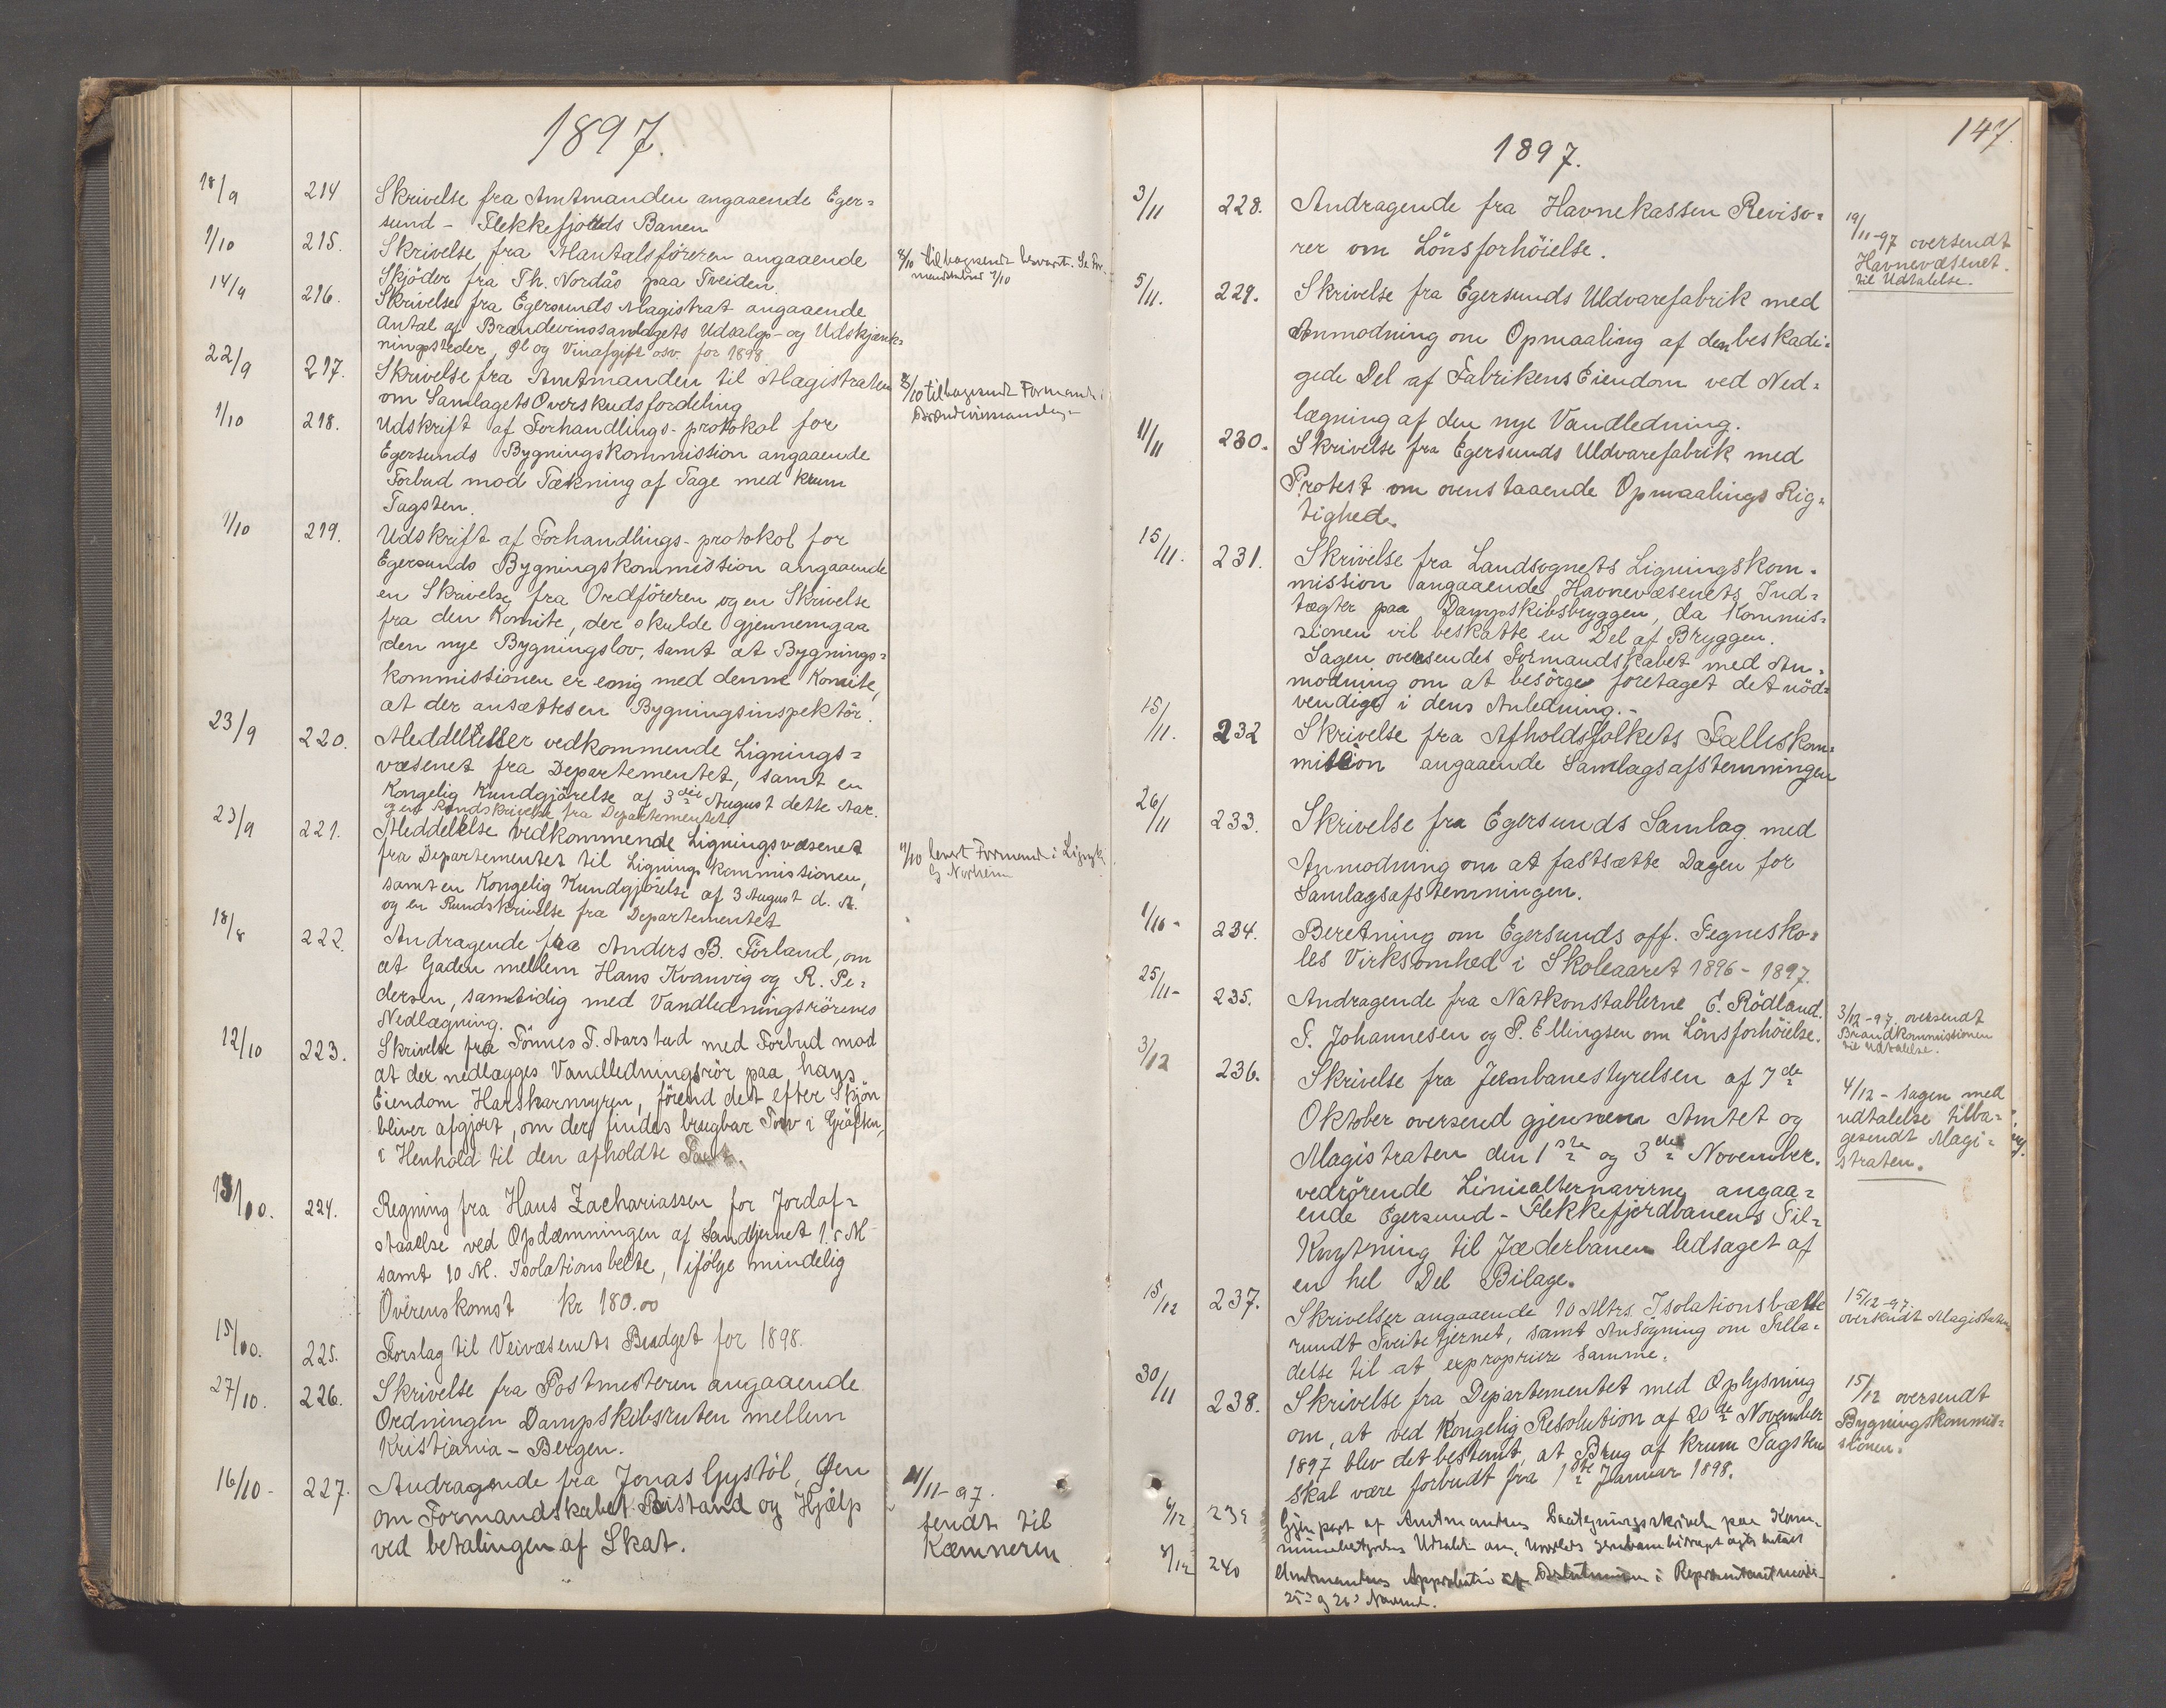 1897.
18/9 214 Skrivelse fra Amtmanden angaaende Eger=
sund - Flekkefjords Banen
1/10 215. Skrivelse fra Mantalsföreren angaaende
Skjöder fra Th. Nordås paa Tveiden.
8/10 tilbagesendt besvaret. Se For-
mandskabet 7/10
14/9 216. Skrivelse fra Egersunds Magistrat angaaende
Antal af Brændevinssamlagets Udsalgs- og Udskjænk=
ningssteder, Øl og Vinafgift osv. for 1898
22/9 217. Skrivelse fra Amtmanden til Magistraten
om Samlagets Overskudsfordeling
8/10 tilbagesendt Formand i
Brændevinssamlag-
1/10 218. Udskrift af Forhandlings-protokol for
Egersunds Bygningskommission angaaende
Forbud mod Tækning af Tage med krum
Tagsten.
1/10 219. Udskrift af Forhandlings-protokol for
Egersunds Bygningskommission angaaende
en Skrivelse fra Ordföreren og en Skrivelse
fra den Komite, der skulde gjennemgaa
den nye Bygningslov, samt at Bygnings=
kommissionen er enig med denne Komite,
at der ansættes en Bygningsinspektör.
23/9 220. Meddelelser vedkommende Lignings=
væsenet fra Departementet, samt en
Kongelig Kundgjörelse af 3die August dette Aar.
og en Rundskrivelse fra Departementet
23/9 221. Meddelelse vedkommende Ligningsvæsenet
fra Departementet til Ligningskommissionen,
samt en Kongelig Kundgjörelse af 3 August d. A.
og en Rundskrivelse fra Departementet
11/10 levert Formand i Lignsk.
Norheim
18/8 222. Andragende fra Anders B. Förland, om
at Gaden mellem Hans Kvanvig og R. Pe=
dersen, samtidig med Vandledningsrörenes
Nedlægning.
12/10 223. Skrivelse fra Tönnes T. Aarstad med Forbud mod
at der nedlægges Vandledningsrör paa hans
Eiendom Harskarmyren, förend det efter Skjön
bliver afgjort, om der findes brugbar Torv i Gröften,
i Henhold til den afholdte
13/10. 224. Regning fra Hans Zachariassen for Jordaf=
staaelse ved Opdæmningen af Sandtjernet 1.5 M
samt 10 M. Isolationsbelte, ifölge mindelig
Överenskomst Kr 180.00
15/10. 225. Forslag til Veivæsenets Budget for 1898.
27/10. 226. Skrivelse fra Postmesteren angaaende
Ordningen Dampskibsruten mellem
Kristiania - Bergen.
16/10- 227. Andragende fra Jonas Gystöl, Øen
om Formandskabet Bistand og Hjælp
ved betalingen af Skat.
4/11-97.
sendt til
Kæmneren
147.
1897.
3/11 228. Andragende fra Havnekassen Reviso=
rer om Lönsforhöielse.
19/11-97 oversendt
Havnevæsenet.
til Udtalelse.
5/11. 229. Skrivelse fra Egersunds Uldvarefabrik med
Anmodning om Opmaaling af den beskadi=
gede Del af Fabrikens Eiendom ved Ned=
lægning af den nye Vandledning.
11/11 230. Skrivelse fra Egersunds Uldvarefabrik med
Protest om ovenstaaende Opmaalings Rig=
tighed.
15/11. 231. Skrivelse fra Landsognets Ligningskom=
mission angaaende Havnevæsenets Ind=
tægter paa Dampskibsbryggen, da Kommis=
sionen vil beskatte en Del af Bryggen.
Sagen oversendes Formandskabet med An=
modning om at besörge foretaget det nöd=
vendige i dens Anledning.-
15/11. 232 Skrivelse fra Afholdsfolkets Fælleskom=
mission angaaende Samlagsafstemningen
26/11 233. Skrivelse fra Egersunds Samlag med
Anmodning om at fastsætte Dagen for
Samlagsafstemningen.
1/10- 234. Beretning om Egersunds off. Tegnesko=
les Virksomhed i Skoleaaret 1896-1897.
25/11- 235. Andragende fra Natkonstablerne E. Rödland.
T. Johannesen og P. Ellingsen om Lönsforhöielse.
3/12-97 oversendt
Brandkommissionen
til Udtalelse.
3/12 236. Skrivelse fra Jernbanestyrelsen af 7de
Oktober oversend gjennem Amtet og
Magistraten den 1ste og 3de November.
vedrörende Liniealternaverne angaa=
ende Egersund-Flekkefjordbanens Til=
Knytning til Jæderbanen ledsaget af
en hel Del Bilage.
4/12 - sagen med
udtalelse tilba=
gesendt Magi=
straten.
15/12 237. Skrivelser angaaende 10 Mtrs. Isolationsbælte
rundt Tveitetjernet, samt Ansögning om Tilla=
delse til at expropriere samme.
15/12-97.
oversendt Magistraten
30/11 238. Skrivelse fra Departementet med Oplysning
om, at ved Kongelig Resolution af 20de November
1897 blev det bestemt, at Brug af krum Tagsten
skal være forbudt fra 1ste Januar 1898.
15/12 oversendt
Bygningskommis=
sionen.
6/12 239 Gjenpart af Amtmandens Paategningsskrivelse paa Kom-
munebestyrelsens
8/12 240 Amtmandens Approbation af Beslutninger i Repræsentantmöde
25de og 26de November.